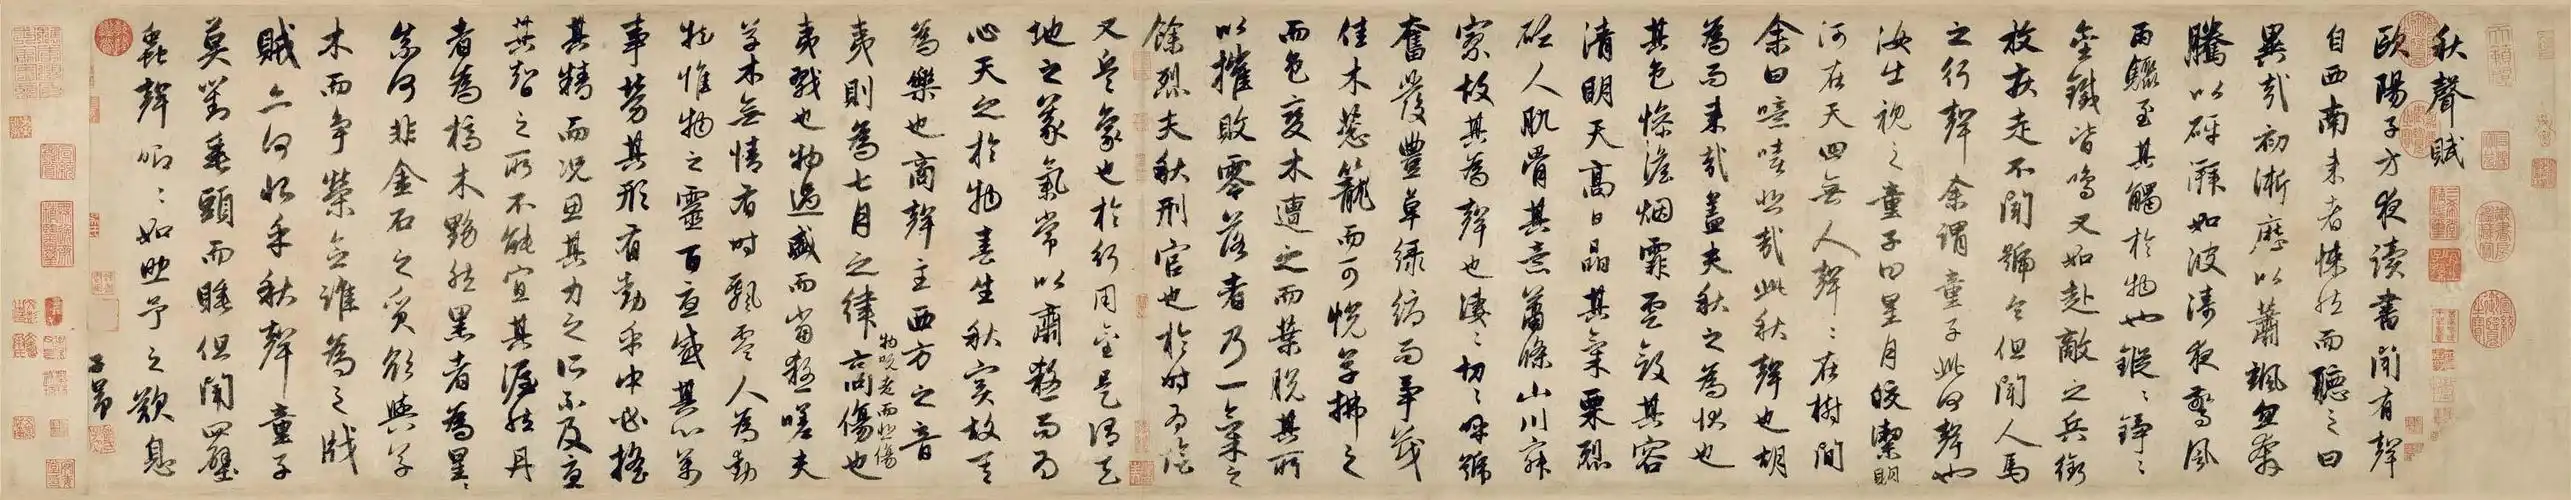 秋聲賦
歐陽子方夜讀書聞有聲
自西南来者悚然而聽之曰
異哉初淅瀝以蕭颯忽奔
騰以砰湃如波濤夜驚風
雨驟至其觸於物也鏦〻錚〻
金鐵皆鳴又如赴敵之兵銜
枚疾走不聞號令但聞人馬
之行聲余謂童子此何聲也
汝出視之童子曰星月皎潔明
河在天四無人聲〻在樹間
余曰噫嘻悲哉此秋聲也胡
為而来哉蓋夫秋之為狀也
其色慘澹烟霏雲斂其容
清明天高日晶其氣栗烈
砭人肌骨其意蕭條山川寂
寥故其為聲也淒〻切〻呼號
奮發豐草綠縟而爭茂
佳木葱籠而可悅草拂之
而色變木遭之而葉脫其所
以摧敗零落者乃一氣之
餘烈夫秋刑官也於時為陰
又兵象也於行用金是謂天
地之義氣常以肅殺而為
心天之於物春生秋實故其
為樂也商聲主西方之音
夷則為七月之律商傷也
物既老而悲傷
夷戮也物過盛而當殺嗟夫
草木無情有時飄零人為動
物惟物之靈百憂感其心萬
事勞其形有動乎中必搖
其精而況思其力之所不及憂
其智之所不能宜其渥然丹
者為槁木黟然黑者為星〻
奈何非金石之質欲與草
木而爭榮念誰為之戕
賊亦何恨乎秋聲童子
莫對垂頭而睡但聞四壁
蟲聲唧〻如助予之歎息
子昂